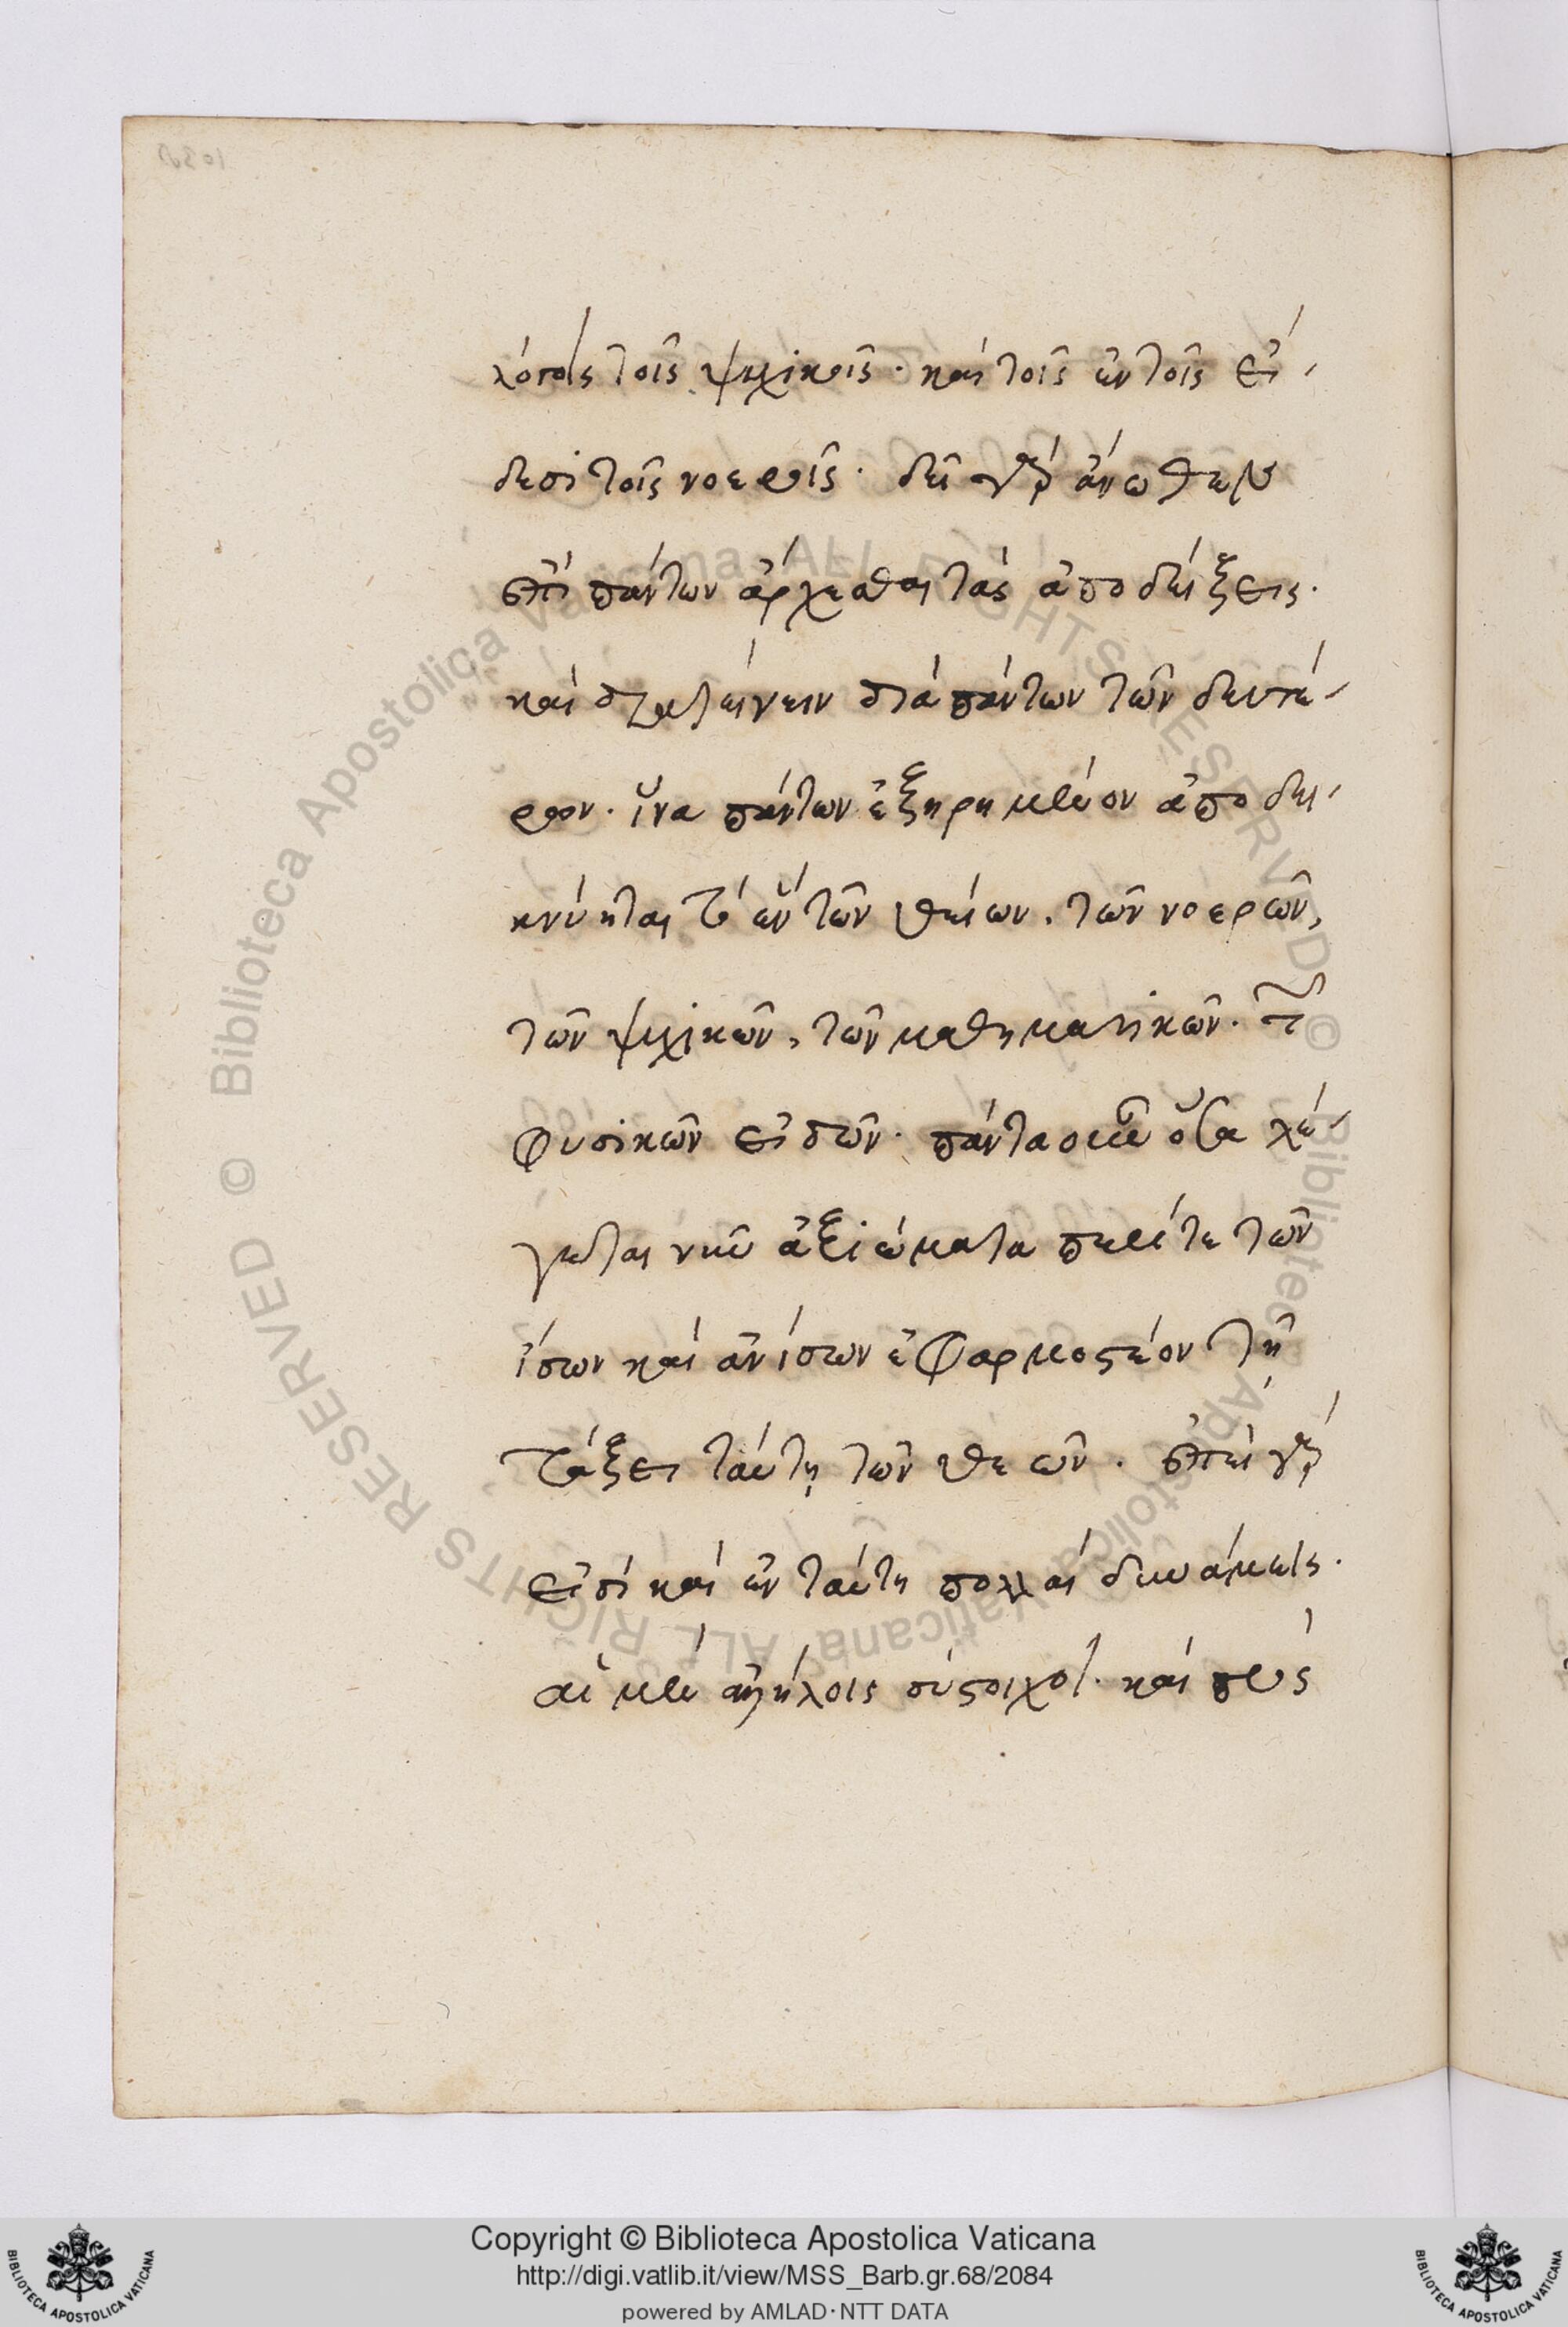 λόγοις τοῖς ψυχικοῖς· καὶ τοῖς ἐν τοῖς εἴ-
δεσι τοῖς νοεροῖς· δεῖ γὰρ ἄνωθεν
ἐπὶ πάντων ἄρχεσθαι τὰς ἀποδείξεις·
καὶ διατείνειν διὰ πάντων τῶν δευτέ-
ρων· ἵνα πάντων ἐξηρημένον ἀποδει-
κνύηται τὸ ἓν τῶν θείων, τῶν νοερῶν,
τῶν ψυχικῶν, τῶν μαθηματικῶν· τῶν
φυσικῶν εἰδῶν· πάντα οὖν ὅσα λέ-
γεται νῦν ἀξιώματα περί τε τῶν
ἴσων καὶ ἀνίσων ἐφαρμοστέον τῇ
τάξει ταύτῃ τῶν θεῶν· ἐπεὶ γὰρ
εἰσὶ καὶ ἐν ταύτη πολλαὶ δυνάμεις·
αἱ μὲν ἀλλήλοις σύστοιχοι· καὶ πρὸς
Copyright © Biblioteca Apostolica Vaticana
http://digi.vatlib.it/view/MSS_Barb.gr.68/2084
powered by AMLAD·NTT DATA